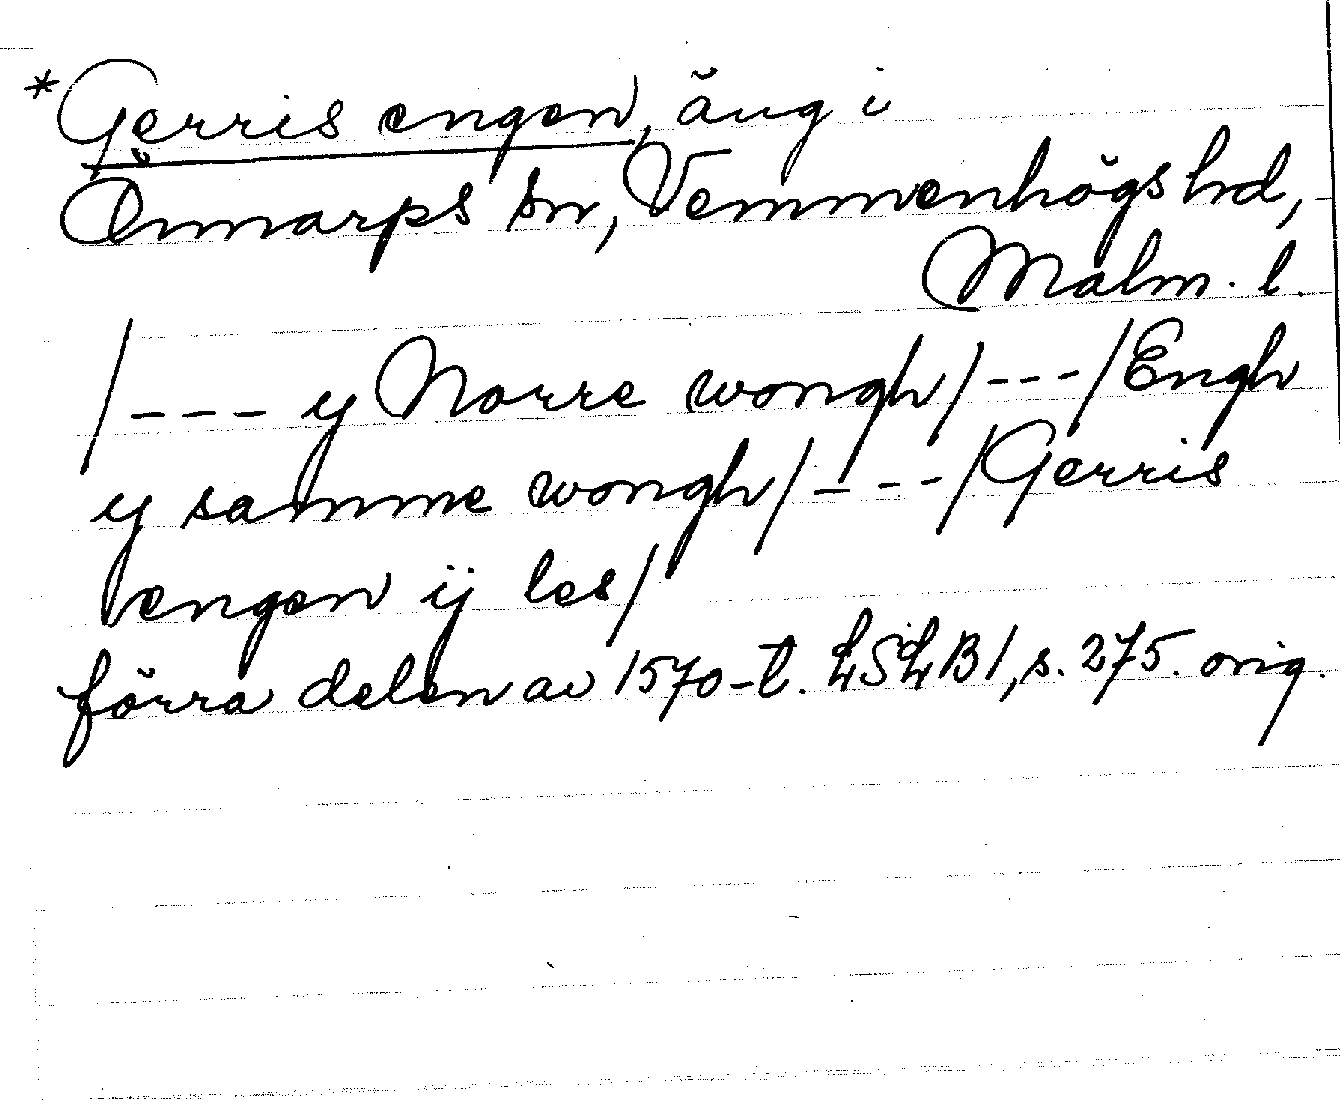 *Gerris engen, äng i
Önnarps sn, Vemmenhögs hd,
Malm. l.
/--- y Norre wongh/---/Engh
y samme wongh/---/Gerris
vengen ij les/
förra delen av 1570-t. LSLB1, s. 275. orig.